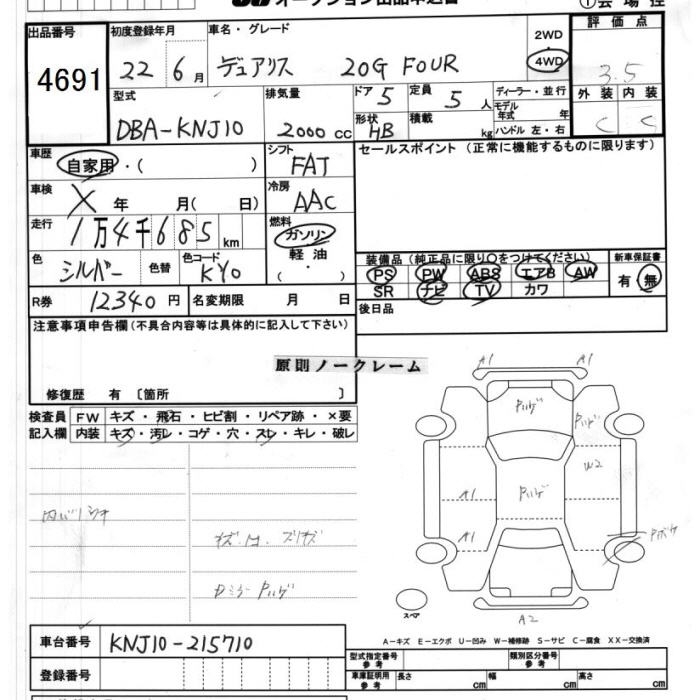 オークション出品申込書
①会場控
出品番号 初度登録年月 車名・グレード 2WD 評価点
4691 22年6月 デュアリス 20G FOUR 4WD 3.5
型式 排気量 ドア 5 定員 5人 ディーラー・並行 外装 内装
DBA-KNJ10 2000cc 形状 HB 積載 kg モデル年式 年 ハンドル 左・右 C C
車歴 自家用・( ) シフト FAT セールスポイント (正常に機能するものに限ります)
車検 X 年 月( 日) 冷房 AAC
走行 1万4千685km 燃料 ガソリン 軽油 ( ・ )
色 シルバー 色替 色コード KY0
装備品(純正品に限り○をつけてください) 新車保証書
PS PW ABS エアB AW 有・無
SR ナビ TV カワ
R券 12340円 名変期限 月 日 後日品
注意事項申告欄(不具合内容等は具体的に記入して下さい)
原則ノークレーム
修復歴 有〔箇所 〕
検査員 FW キズ・飛石・ヒビ割・リペア跡・×要
記入欄 内装 キズ・汚レ・コゲ・穴・スレ・キレ・破レ
A1 A1
Pハゲ Pハゲ
W2
A1 Pハゲ
A1 Pボケ
スペア
A2
車台番号 KNJ10-215710
A-キズ E-エクボ U-凹み W-補修跡 S-サビ C-腐食 XX-交換済
登録番号
型式指定番号 参考 類別区分番号 参考
車庫証明用 参考 長さ cm 幅 cm 高さ cm